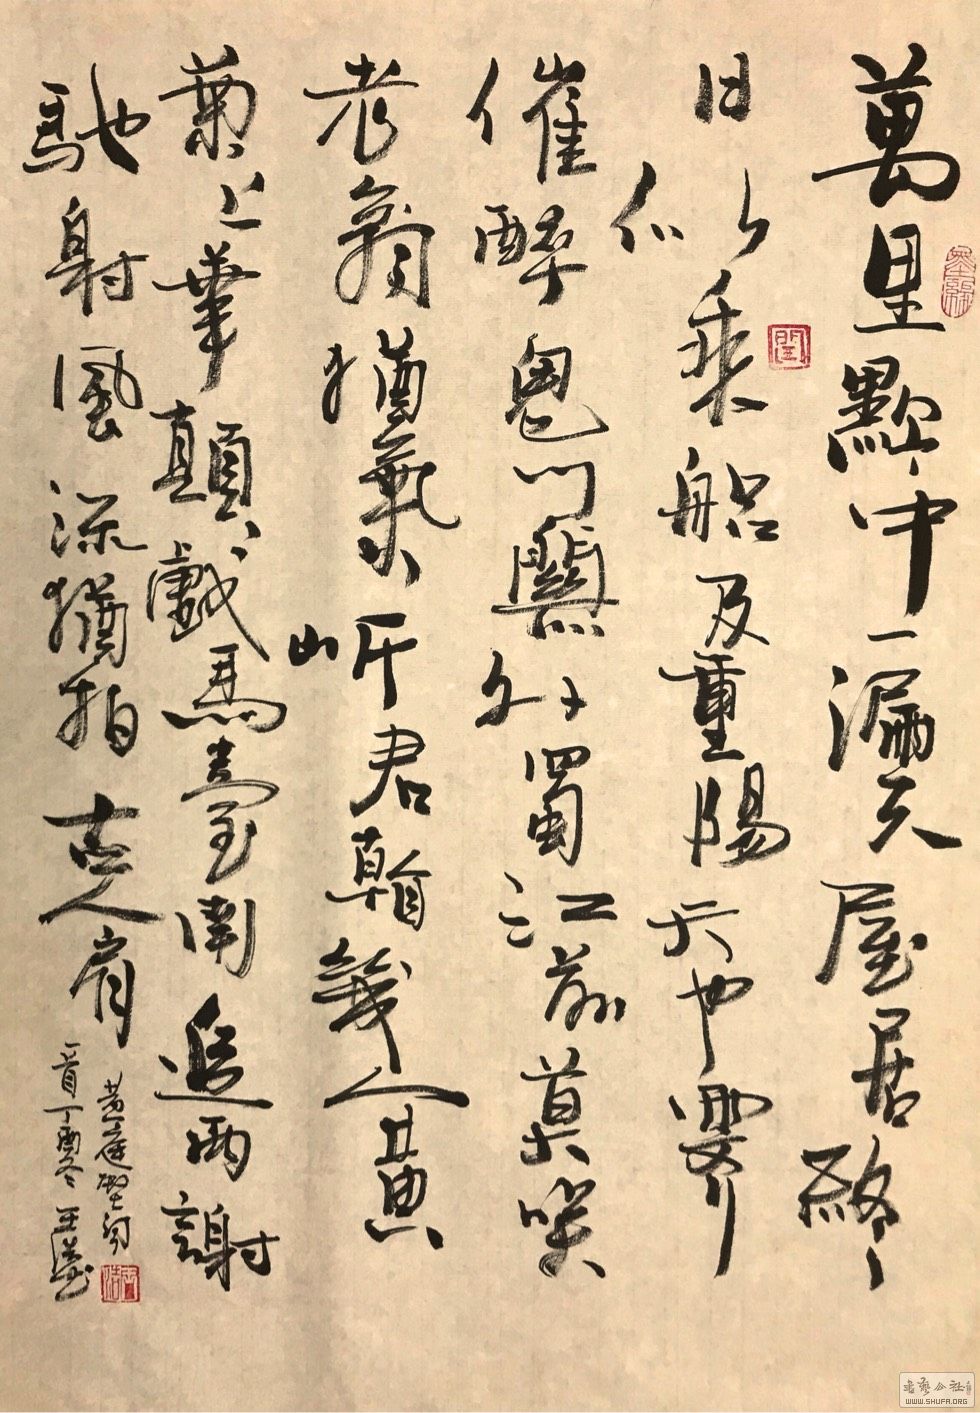 萬里黔中一漏天屋居終
日似乘船及重陽天也霽
催醉鬼門關外蜀江前莫笑
老翁猶氣岸君看幾人黃
菊上華顛戲馬臺南追兩謝
馳射風流猶拍古人肩
黃庭堅詞
一首丁酉冬 王
書藝公社
WWW.SHUFA.ORG